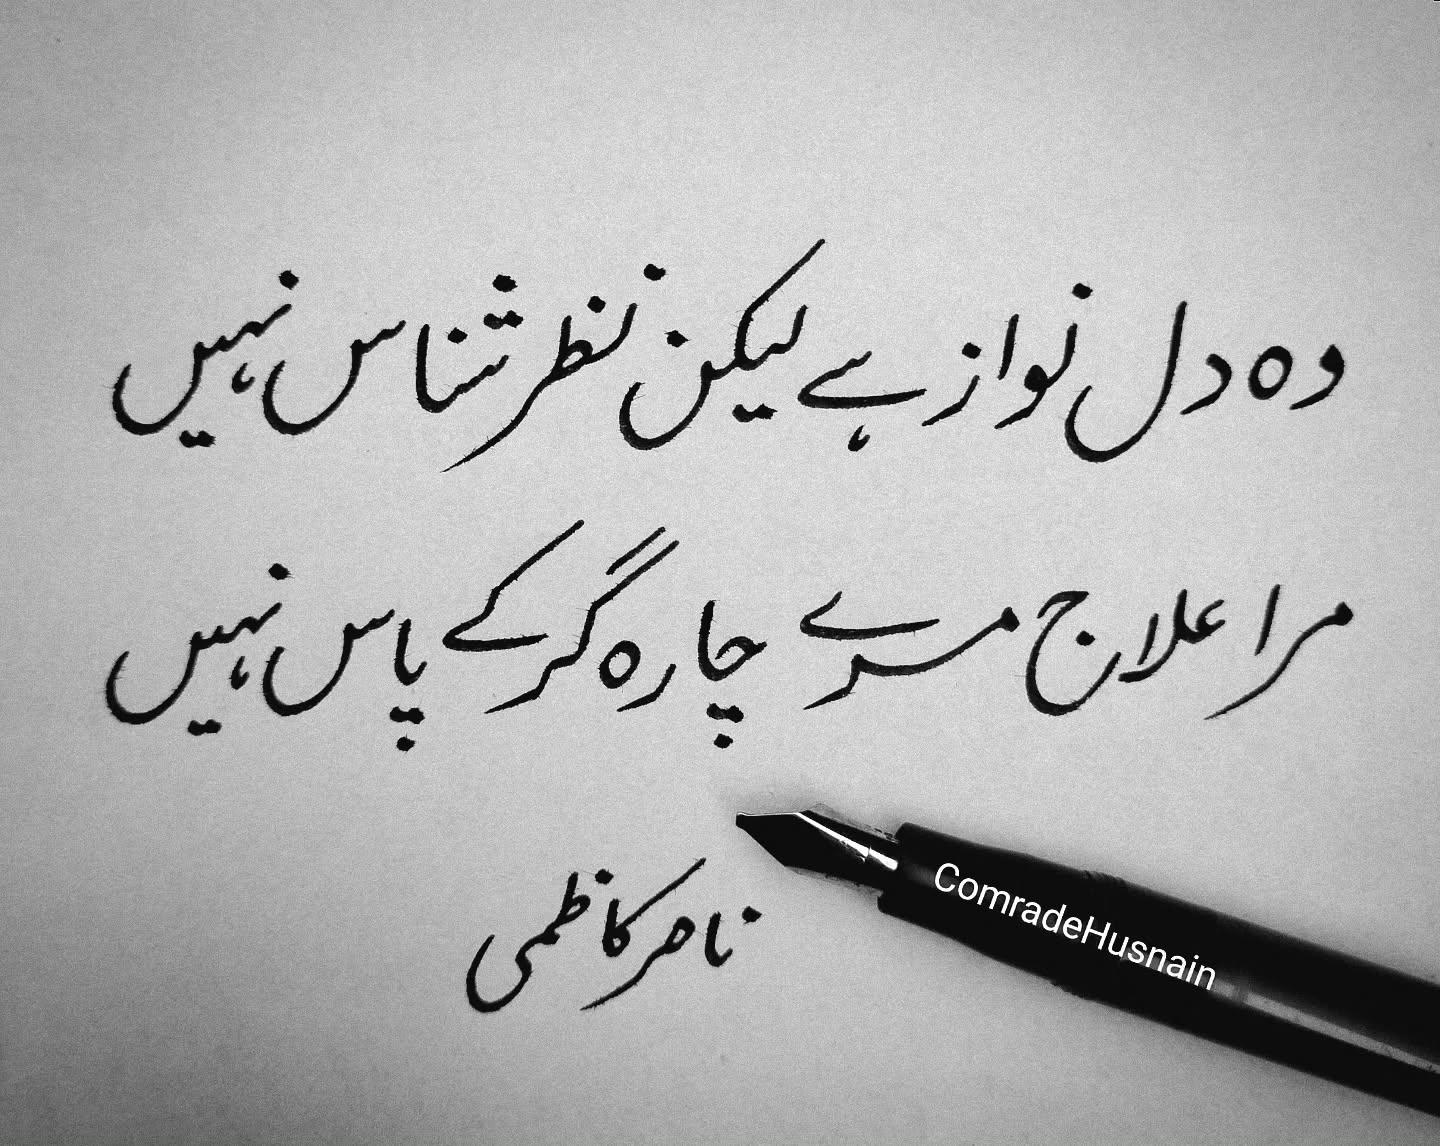 وہ دل نواز ہے لیکن نظر شناس نہیں
مرا علاج مرے چارہ گر کے پاس نہیں
ناصر کاظمی
ComradeHusnain